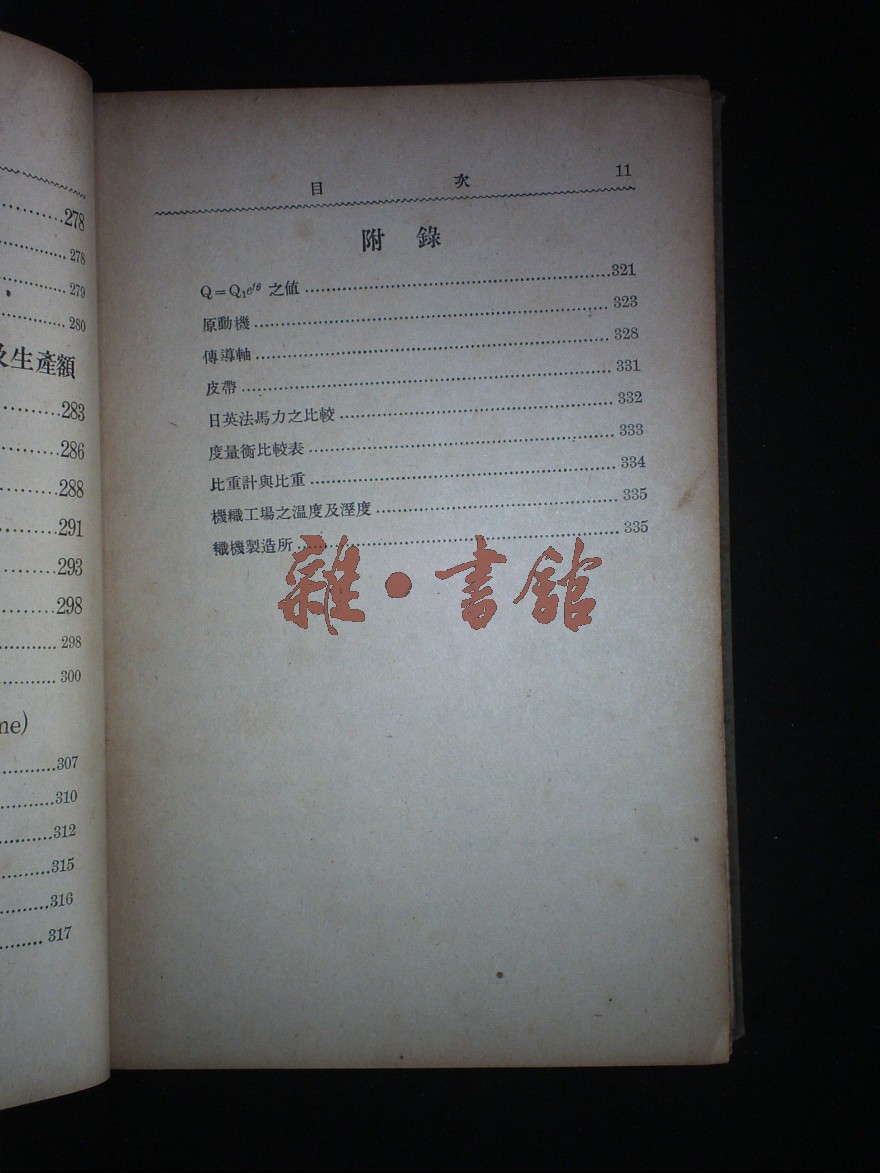 278
278
279
280
及生產額
283
286
288
291
293
298
298
300
ne)
307
310
312
315
316
317
目 次 11
附 錄
Q=Q₁eᶠᶿ 之值 321
原動機 323
傳導軸 328
皮帶 331
日英法馬力之比較 332
度量衡比較表 333
比重計與比重 334
機織工場之温度及溼度 335
織機製造所 335
雜·書館